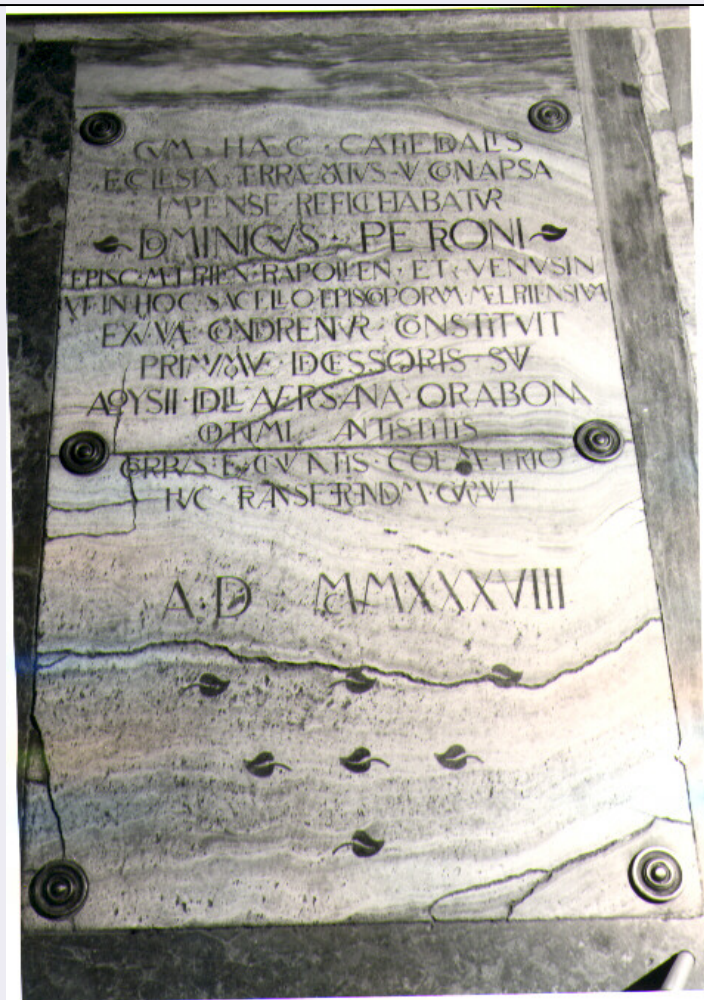 CVM · HAEC · CATHEDRALIS
ECCLESIA · TERRAEMOTVS · VI CONLAPSA
IMPENSE REFICIEBATVR
DOMINICVS · PETRONI
EPISC · MELPHIEN · RAPOLLEN · ET · VENVSIN
VT IN HOC SACELLO EPISCOPORVM MELPHIENSIVM
EXVVIAE CONDERENTVR CONSTITVIT
SVI
ALOYSII · DELL AVERSANA · ORABONA
OPTIMI ANTISTITIS
CORPVS · E · CIVITATIS · COEMETRIO
HVC · TRANSFERENDVM · CVRAVIT
A · D